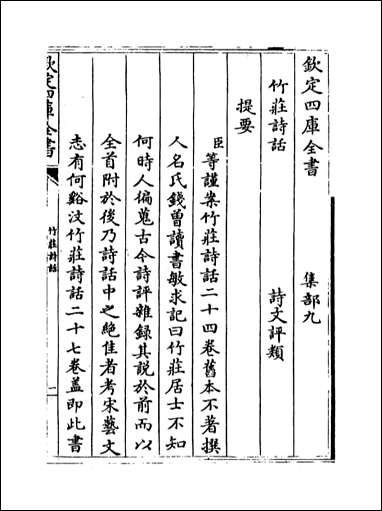 欽定四庫全書 集部九
竹莊詩話 詩文評類
提要
臣等謹案竹莊詩話二十四卷舊本不著撰
人名氏錢曾讀書敏求記曰竹莊居士不知
何時人徧蒐古今詩評雜録其説於前而以
全首附於後乃詩話中之絶佳者考宋藝文
志有何谿汶竹莊詩話二十七卷蓋即此書
欽定四庫全書
竹莊詩話
一